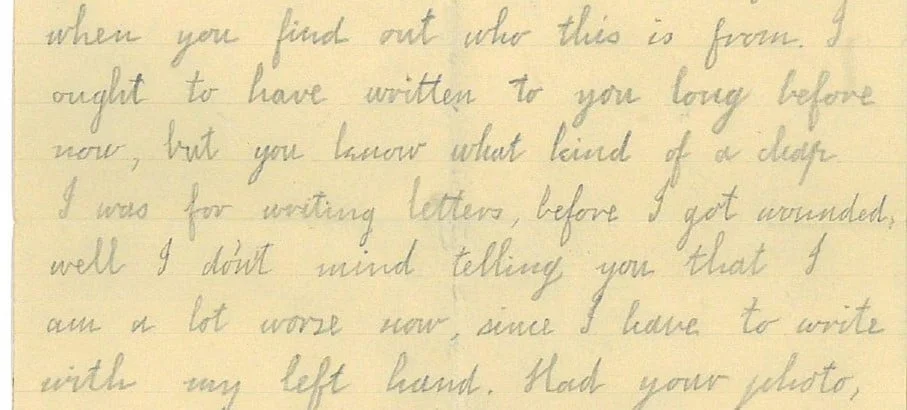 when you find out who this is from. I
ought to have written to you long before
now, but you know what kind of a chap
I was for writing letters, before I got wounded,
well I don't mind telling you that I
am a lot worse now, since I have to write
with my left hand. Had your photo,